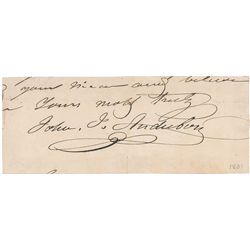 your views and believe
Yours most truly
John. J. Audubon
1831